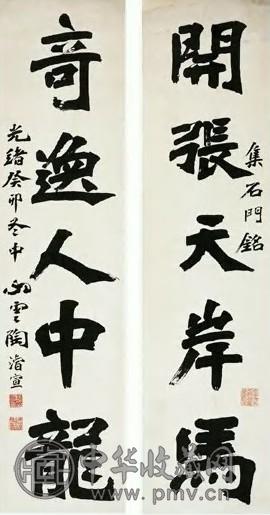 開張天岸馬
集石門銘
奇逸人中龍
光緒癸卯冬中 心雲陶濬宣
中华收藏网
www.pmv.cn